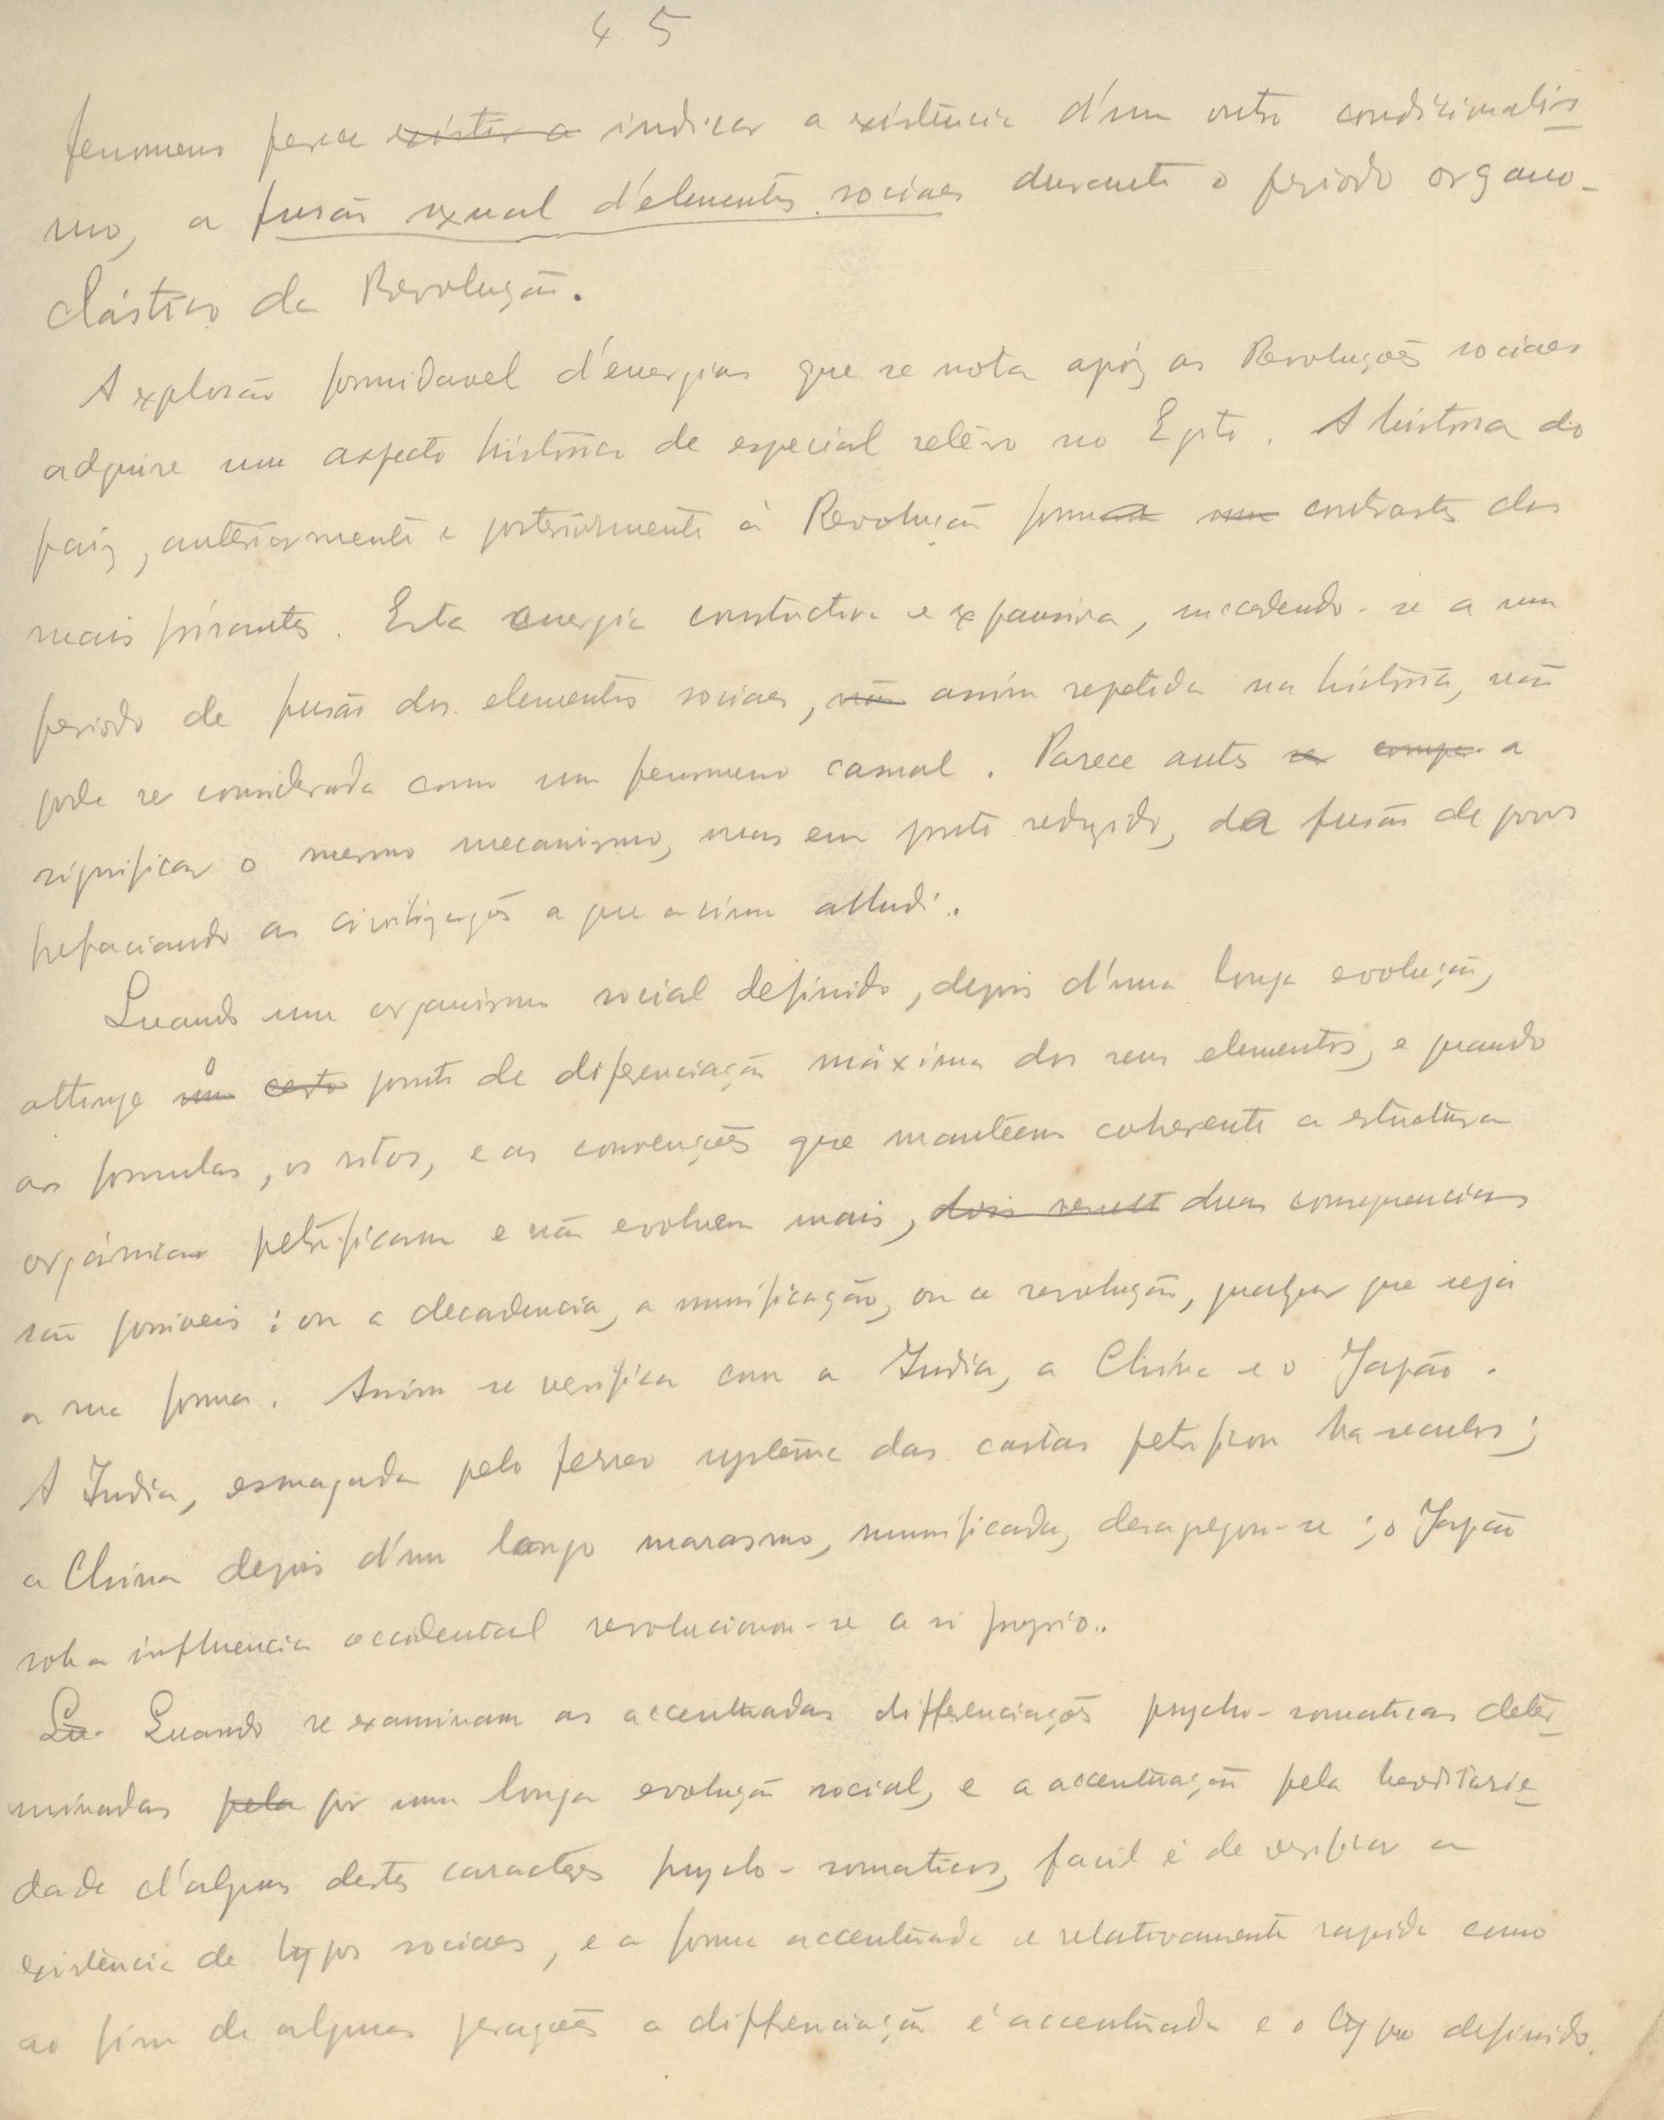 45
fenomeno parece existir a indicar a existencia d'um outro condicionalis
mo, a fusão sexual d'elementos sociaes durante o periodo organo-
clástico da Revolução.
A explosão formidavel d'energias que se nota após as Revoluções sociaes
adquire um aspecto historico de especial relêvo no Egito. A historia do
paiz, anteriormente e posteriormente á Revolução forma um contrastes dos
mais frisantes. Esta energia constructiva e expansiva, succedendo-se a um
periodo de fusão dos elementos sociaes, não assim repetida na historia, não
pode ser considerada como um fenomeno casual. Parece antes se compa a
significar o mesmo mecanismo, mas em ponto reduzido, da fusão de povos
prefaciando as civilizações a que acima alludi.
Quando um organismo social definido, depois d'uma longa evolução,
attinge um o certo ponto de diferenciação máxima dos seus elementos, e quando
as formulas, os ritos, e as convenções que mantêem coherente a estructura
orgánica petrificam e não evoluem mais, dois result duas consequencias
são possiveis: ou a decadencia, a mumificação, ou a revolução, qualquer que seja
a sua forma. Assim se verifica com a India, a China e o Japão.
A India, esmagada pelo ferreo systema das castas petrificou ha seculos;
a China depois d'um longo marasmo, mumificada, desagregou-se; o Japão
sob a influencia occidental revolucionou-se a si proprio..
Qu. Quando se examinam as accentuadas differenciações psycho-somaticas deter
minadas pela por uma longa evolução social, e a accentuação pela heriditarie
dade d'alguns destes caractéres psycho-somaticos, facil é de verificar a
existência de typos sociaes, e a forma accentuada e relativamente rapida como
ao fim de algumas gerações a differenciação é accentuada e o typo definido.